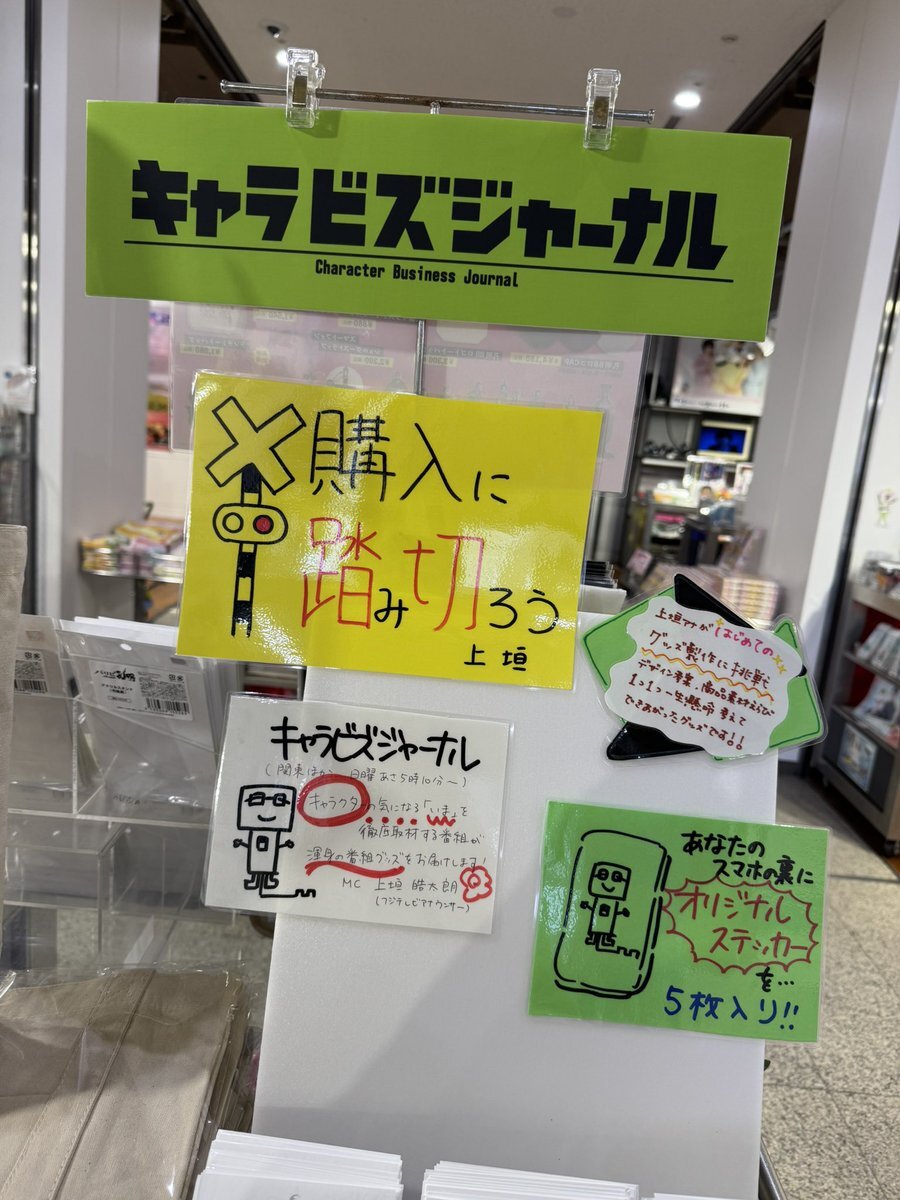 キャラビズジャーナル
Character Business Journal
購入に
踏み切ろう
上垣
上垣アナがはじめての
グッズ製作に挑戦
デザイン考案、商品素材えらび
1つ1つ一生懸命考えて
できあがったグッズです!!
キャラビズジャーナル
(関東ほか 日曜あさ5時10分〜)
キャラクターの気になる「いま」を
徹底取材する番組が
渾身の番組グッズをお届けします!
MC 上垣皓太朗
(フジテレビアナウンサー)
あなたの
スマホの裏に
オリジナル
ステッカー
を…
5枚入り!!